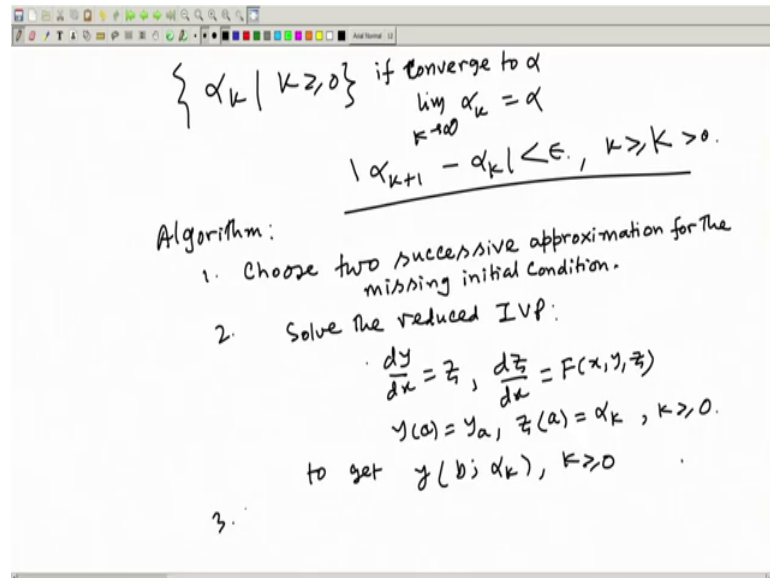 { αₖ | k ≥ 0 } if converge to α
lim αₖ = α
k→∞
| αₖ₊₁ − αₖ | < ϵ, k ≥ K > 0.
Algorithm:
1. Choose two successive approximation for the
missing initial condition.
2. Solve the reduced IVP:
dy/dx = z, dz/dx = F(x, y, z)
y(a) = yₐ, z(a) = αₖ, k ≥ 0.
to get y(b; αₖ), k ≥ 0
3.